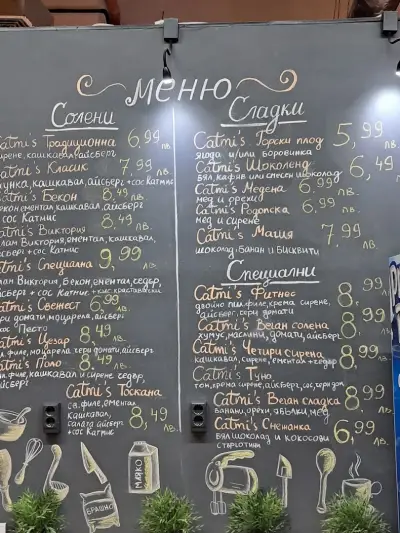 МЕНЮ
Солени
Catmi's Традиционна 6,99 лв.
сирене, кашкавал, айсберг
Catmi's Класик 7,99 лв.
шунка, кашкавал, айсберг + сос Катмис
Catmi's Бекон 8,49 лв.
бекон, ементал, кашкавал, айсберг
+ сос Катмис
Catmi's Виктория 8,49 лв.
Виктория, ементал, кашкавал,
айсберг + сос Катмис
Catmi's Специална 9,99 лв.
Виктория, Бекон, ементал, седер,
айсберг + сос Катмис + сос краставички
Catmi's Свежест 6,99 лв.
чери домати, моцарела, айсберг
сос Песто
Catmi's Цезар 8,49 лв.
п. филе, моцарела, чери домати, айсберг
Catmi's Поло 8,49 лв.
п. филе, кашкавал и сирене седер,
айсберг
Catmi's Тоскана 8,49 лв.
св. филе, ементал
кашкавал,
салата айсберг
+ сос Катмис
МЛЯКО
БРАШНО
Сладки
Catmi's Горски плод 5,99 лв.
ягода и/или боровинка
Catmi's Шоколенд 6,49 лв.
бял, кафяв или смесен шоколад
Catmi's Медена 6,99 лв.
мед и орехи
Catmi's Родопска 6,99 лв.
мед и сирене
Catmi's Магия 7,99 лв.
шоколад, Банан и Бисквити
Специални
Catmi's Фитнес 8,99 лв.
двойно пил. филе, крема сирене,
айсберг, чери домати
Catmi's Веган солена 8,99 лв.
хумус, маслини, домати, айсберг
Catmi's Четири сирена 8,99 лв.
кашкавал, сирене, ементал + седер
Catmi's Туно 8,99 лв.
тон, крема сирене, айсберг,
Catmi's Веган сладка 8,99 лв.
банани, орехи, ябълки, мед
Catmi's Снежанка 6,99 лв.
бял шоколад и кокосови
стърготини